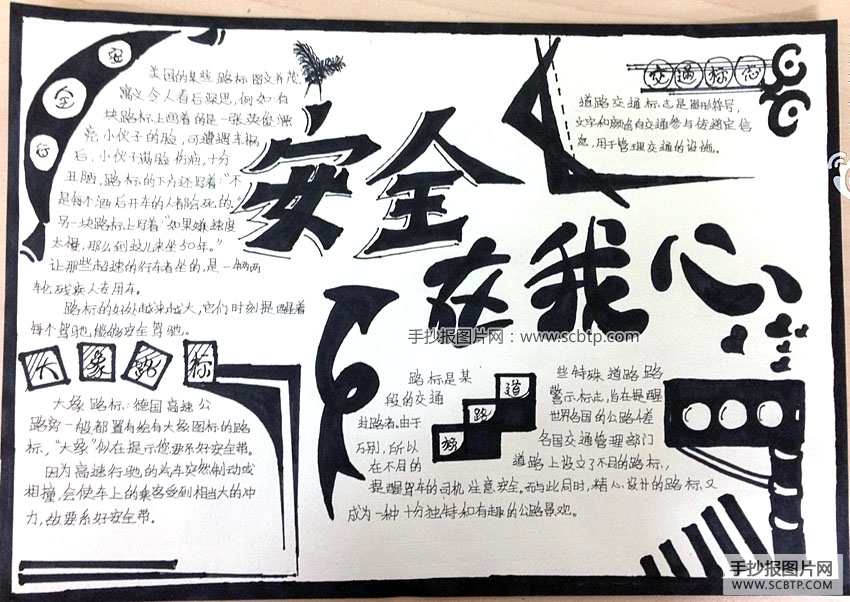 安
全
行
美国的某些路标图文并茂
寓义令人看后深思,例如有
块路标上画着的是一张英俊漂
亮小伙子的脸,可遭遇车祸
后,小伙子满脸伤痕,十分
丑陋,路标的下方还写着:"不
是每个酒后开车的人都会死的。"
另一块路标上写着"如果嫌速度
太慢,那么到这儿来坐30年。"
让那些超速的行车者坐的,是一辆两
轮残疾人专用车。
路标的好处越来越大,它们时刻提醒着
每个驾驶,您的安全驾驶。
安全
在我心
交通标志
道路交通标志是图形符号,
文字和颜色向交通参与传递定信
息,用于管理交通的设施。
大象路标
大象路标:德国高速公
路旁一般都置有绘有大象图标的路
标,"大象"似在提示您要系好安全带。
因为高速行驶的汽车突然制动或
相撞,会使车上的乘客受到相当大的冲
力,故要系好安全带。
道
路
标
路标是某 些特殊道路路
段的交通 警示标志,旨在提醒
赶路者,由于 世界各国的公路千差
万别,所以 各国交通管理部门
在不同的 道路上设立了不同的路标,
提醒驾车的司机注意安全。而与此同时,精心设计的路标又
成为一种十分独特和有趣的公路景观。
手抄报图片网:www.scbtp.com
手抄报图片网
WWW.SCBTP.COM